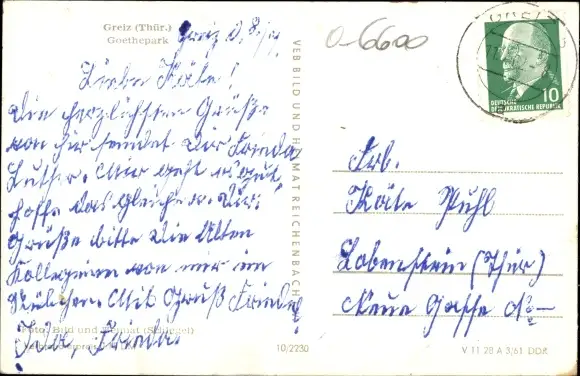 Greiz (Thür.)
Goethepark
Greiz, d.
Liebe Käte!
Die herzlichsten Grüße
von hir sendet Dir Frieda
Luther. Mir geht es gut
hoffe das gleiche v. Dir.
Grüße bitte die Alten
Kolleginen von mir im
Mit Gruß Frieda
Frieda.
Foto: Bild und Heimat (Schlegel)
10/2230
VEB BILD UND HEIMAT REICHENBACH
0-6600
10
DEUTSCHE
DEMOKRATISCHE REPUBLIK
Frl.
Käte Puhl
Lobenstein (Thür)
Neue Gasse
V 11 28 A 3/61 DDR